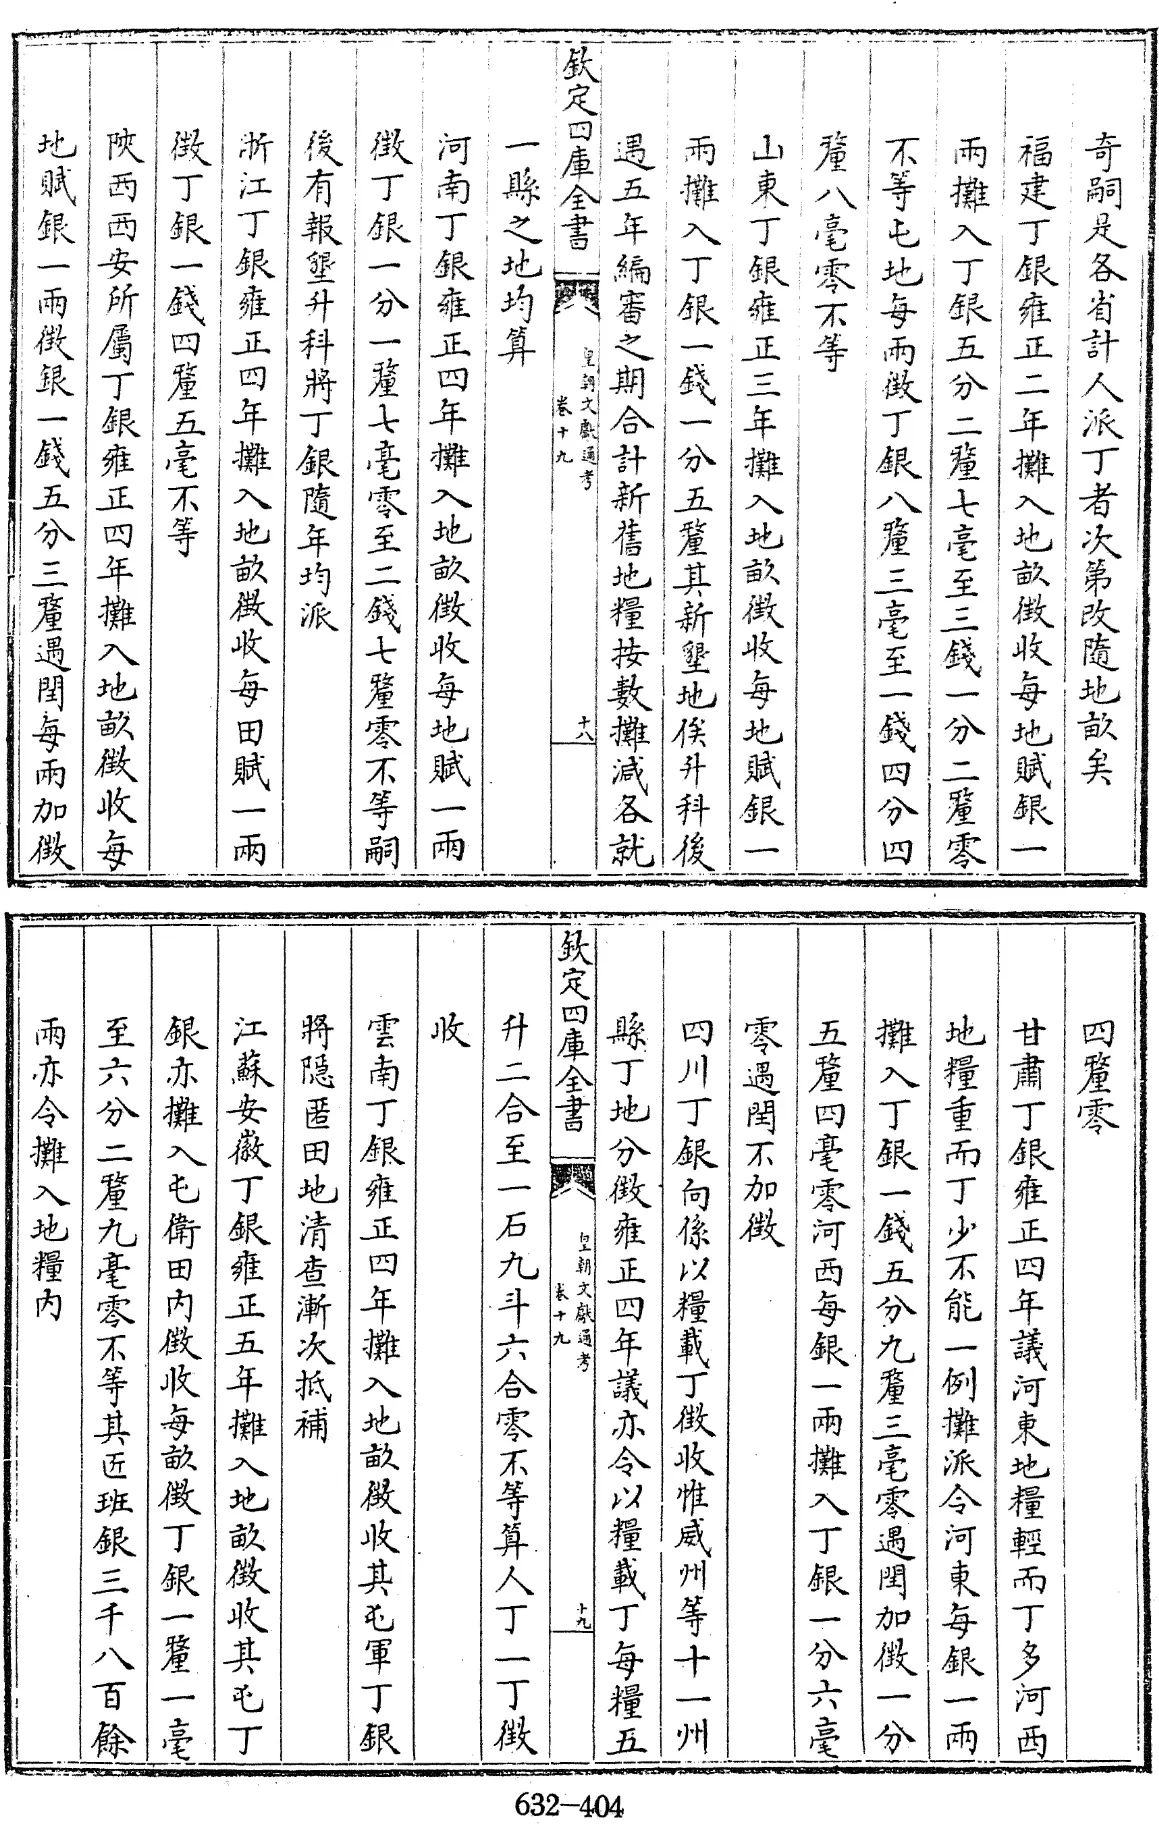 奇嗣是各省計人派丁者次第改隨地畝矣
福建丁銀雍正二年攤入地畝徵收每地賦銀一
兩攤入丁銀五分二釐七毫至三錢一分二釐零
不等屯地每兩徵丁銀八釐三毫至一錢四分四
釐八毫零不等
山東丁銀雍正三年攤入地畝徵收每地賦銀一
兩攤入丁銀一錢一分五釐其新墾地俟升科後
遇五年編審之期合計新舊地糧按數攤減各就
欽定四庫全書
皇朝文獻通考
卷十九
十八
一縣之地均算
河南丁銀雍正四年攤入地畝徵收每地賦一兩
徵丁銀一分一釐七毫零至二錢七釐零不等嗣
後有報墾升科將丁銀隨年均派
浙江丁銀雍正四年攤入地畝徵收每田賦一兩
徵丁銀一錢四釐五毫不等
陝西西安所屬丁銀雍正四年攤入地畝徵收每
地賦銀一兩徵銀一錢五分三釐遇閏每兩加徵
四釐零
甘肅丁銀雍正四年議河東地糧輕而丁多河西
地糧重而丁少不能一例攤派令河東每銀一兩
攤入丁銀一錢五分九釐三毫零遇閏加徵一分
五釐四毫零河西每銀一兩攤入丁銀一分六毫
零遇閏不加徵
四川丁銀向係以糧載丁徵收惟威州等十一州
縣丁地分徵雍正四年議亦令以糧載丁每糧五
欽定四庫全書
皇朝文獻通考
卷十九
十九
升二合至一石九斗六合零不等算人丁一丁徵
收
雲南丁銀雍正四年攤入地畝徵收其屯軍丁銀
將隱匿田地清查漸次抵補
江蘇安徽丁銀雍正五年攤入地畝徵收其屯丁
銀亦攤入屯衛田內徵收每畝徵丁銀一釐一毫
至六分二釐九毫零不等其匠班銀三千八百餘
兩亦令攤入地糧內
632-404